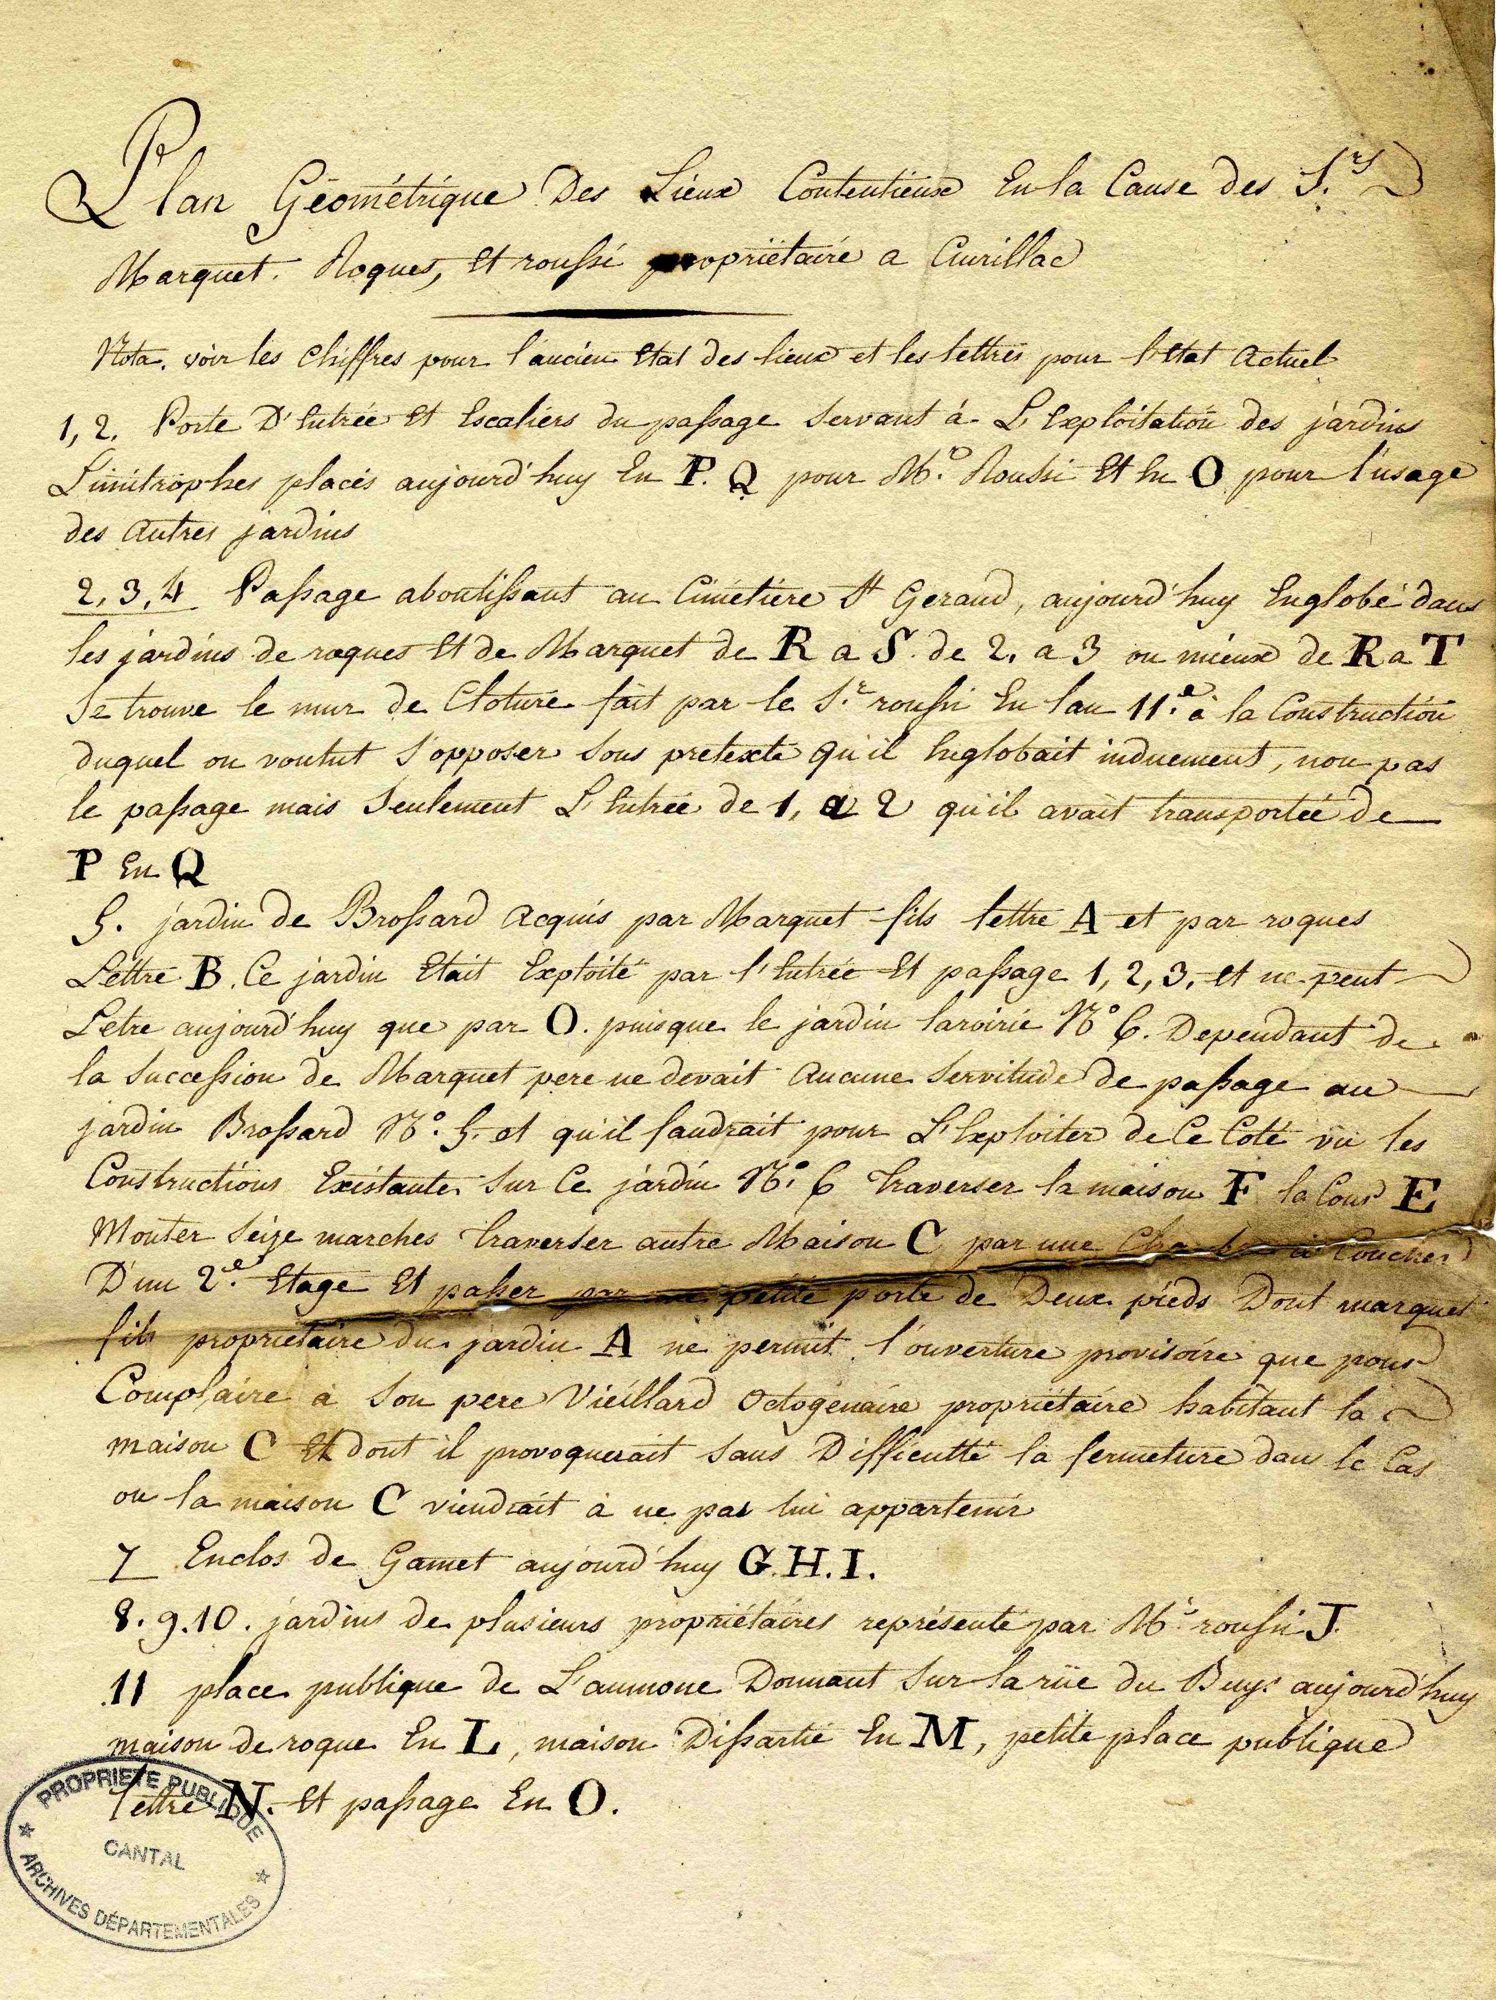 Plan Géométrique Des Lieux Contentieux En la Cause des S.rs
Marquet. Roques, Et roussi propriétaire a Aurillac
Nota. voir les chiffres pour l'ancien Etat des lieux et les lettres pour l'Etat Actuel
1, 2. Porte D'Entrée Et Escaliers du passage Servant à L'Exploitation des jardins
Limitrophes placés aujourd'huy En P. Q pour M.r Roussi Et En O pour l'usage
des Autres jardins
2, 3, 4 Passage aboutissant au Cimetiere St Geraud, aujourd'huy Englobé dans
les jardins de roques Et de Marquet de R a S. de 2. a 3 ou mieux de R a T
Se trouve le mur de Cloture fait par le S.r roussi En l'an 11.e à la Construction
duquel on voulut S'opposer Sous pretexte qu'il Englobait induement, non pas
le passage mais Seulement L'Entrée de 1, a 2 qu'il avait transportée de
P En Q
5. jardin de Brossard Acquis par Marquet fils lettre A et par roques
Lettre B. Ce jardin Etait Exploité par l'Entrée Et passage 1, 2, 3. et ne peut
L'etre aujourd'huy que par O. puisque le jardin Laroirie N.o 6. Dependant de
la Succession de Marquet pere ne devait Aucune Servitude de passage au
jardin Brossard N.o 5. et qu'il faudrait pour L'Exploiter de Ce Coté vu les
Constructions Existantes Sur Ce jardin N.o 6 Traverser la maison F la Cour E
Monter Seize marches Traverser autre Maison C par une Chambre à Coucher
D'un 2.e Etage Et passer par une petite porte de Deux pieds Dont marquet
fils proprietaire du jardin A ne permit l'ouverture provisoire que pour
Complaire à Son pere Vieillard Octogenaire propriétaire habitant la
maison C Et dont il provoquerait Sans Difficulté la fermeture dans le Cas
ou la maison C viendrait à ne pas lui appartenir
7 Enclos de Gamet aujourd'huy G. H. I.
8. 9. 10. jardins de plusieurs propriétaires représenté par M.r roussi J.
11 place publique de L'aumone Donnant Sur la rüe du Buys aujourd'huy
maison de roque En L, maison Dissartie En M, petite place publique
lettre N. Et passage En O.
PROPRIETE PUBLIQUE
CANTAL
ARCHIVES DÉPARTEMENTALES